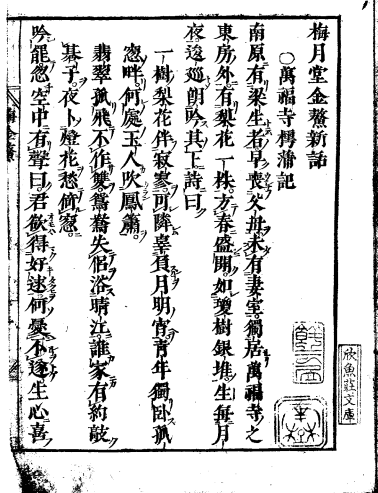 梅月堂金鰲新話
○萬福寺樗蒲記
南原有梁生者早喪父母未有妻室獨居萬福寺之
東房外有梨花一株方春盛開如瓊樹銀堆生每月
夜逡巡朗吟其下詩曰
一樹梨花伴寂寥可憐辜負月明宵青年獨臥孤
窓畔何處玉人吹鳳簫
翡翠孤飛不作雙鴛鴦失侶浴晴江誰家有約敲
碁子夜卜燈花愁倚窓
吟罷忽空中有聲曰君欲得好逑何憂不遂生心喜
欣魚莊文庫